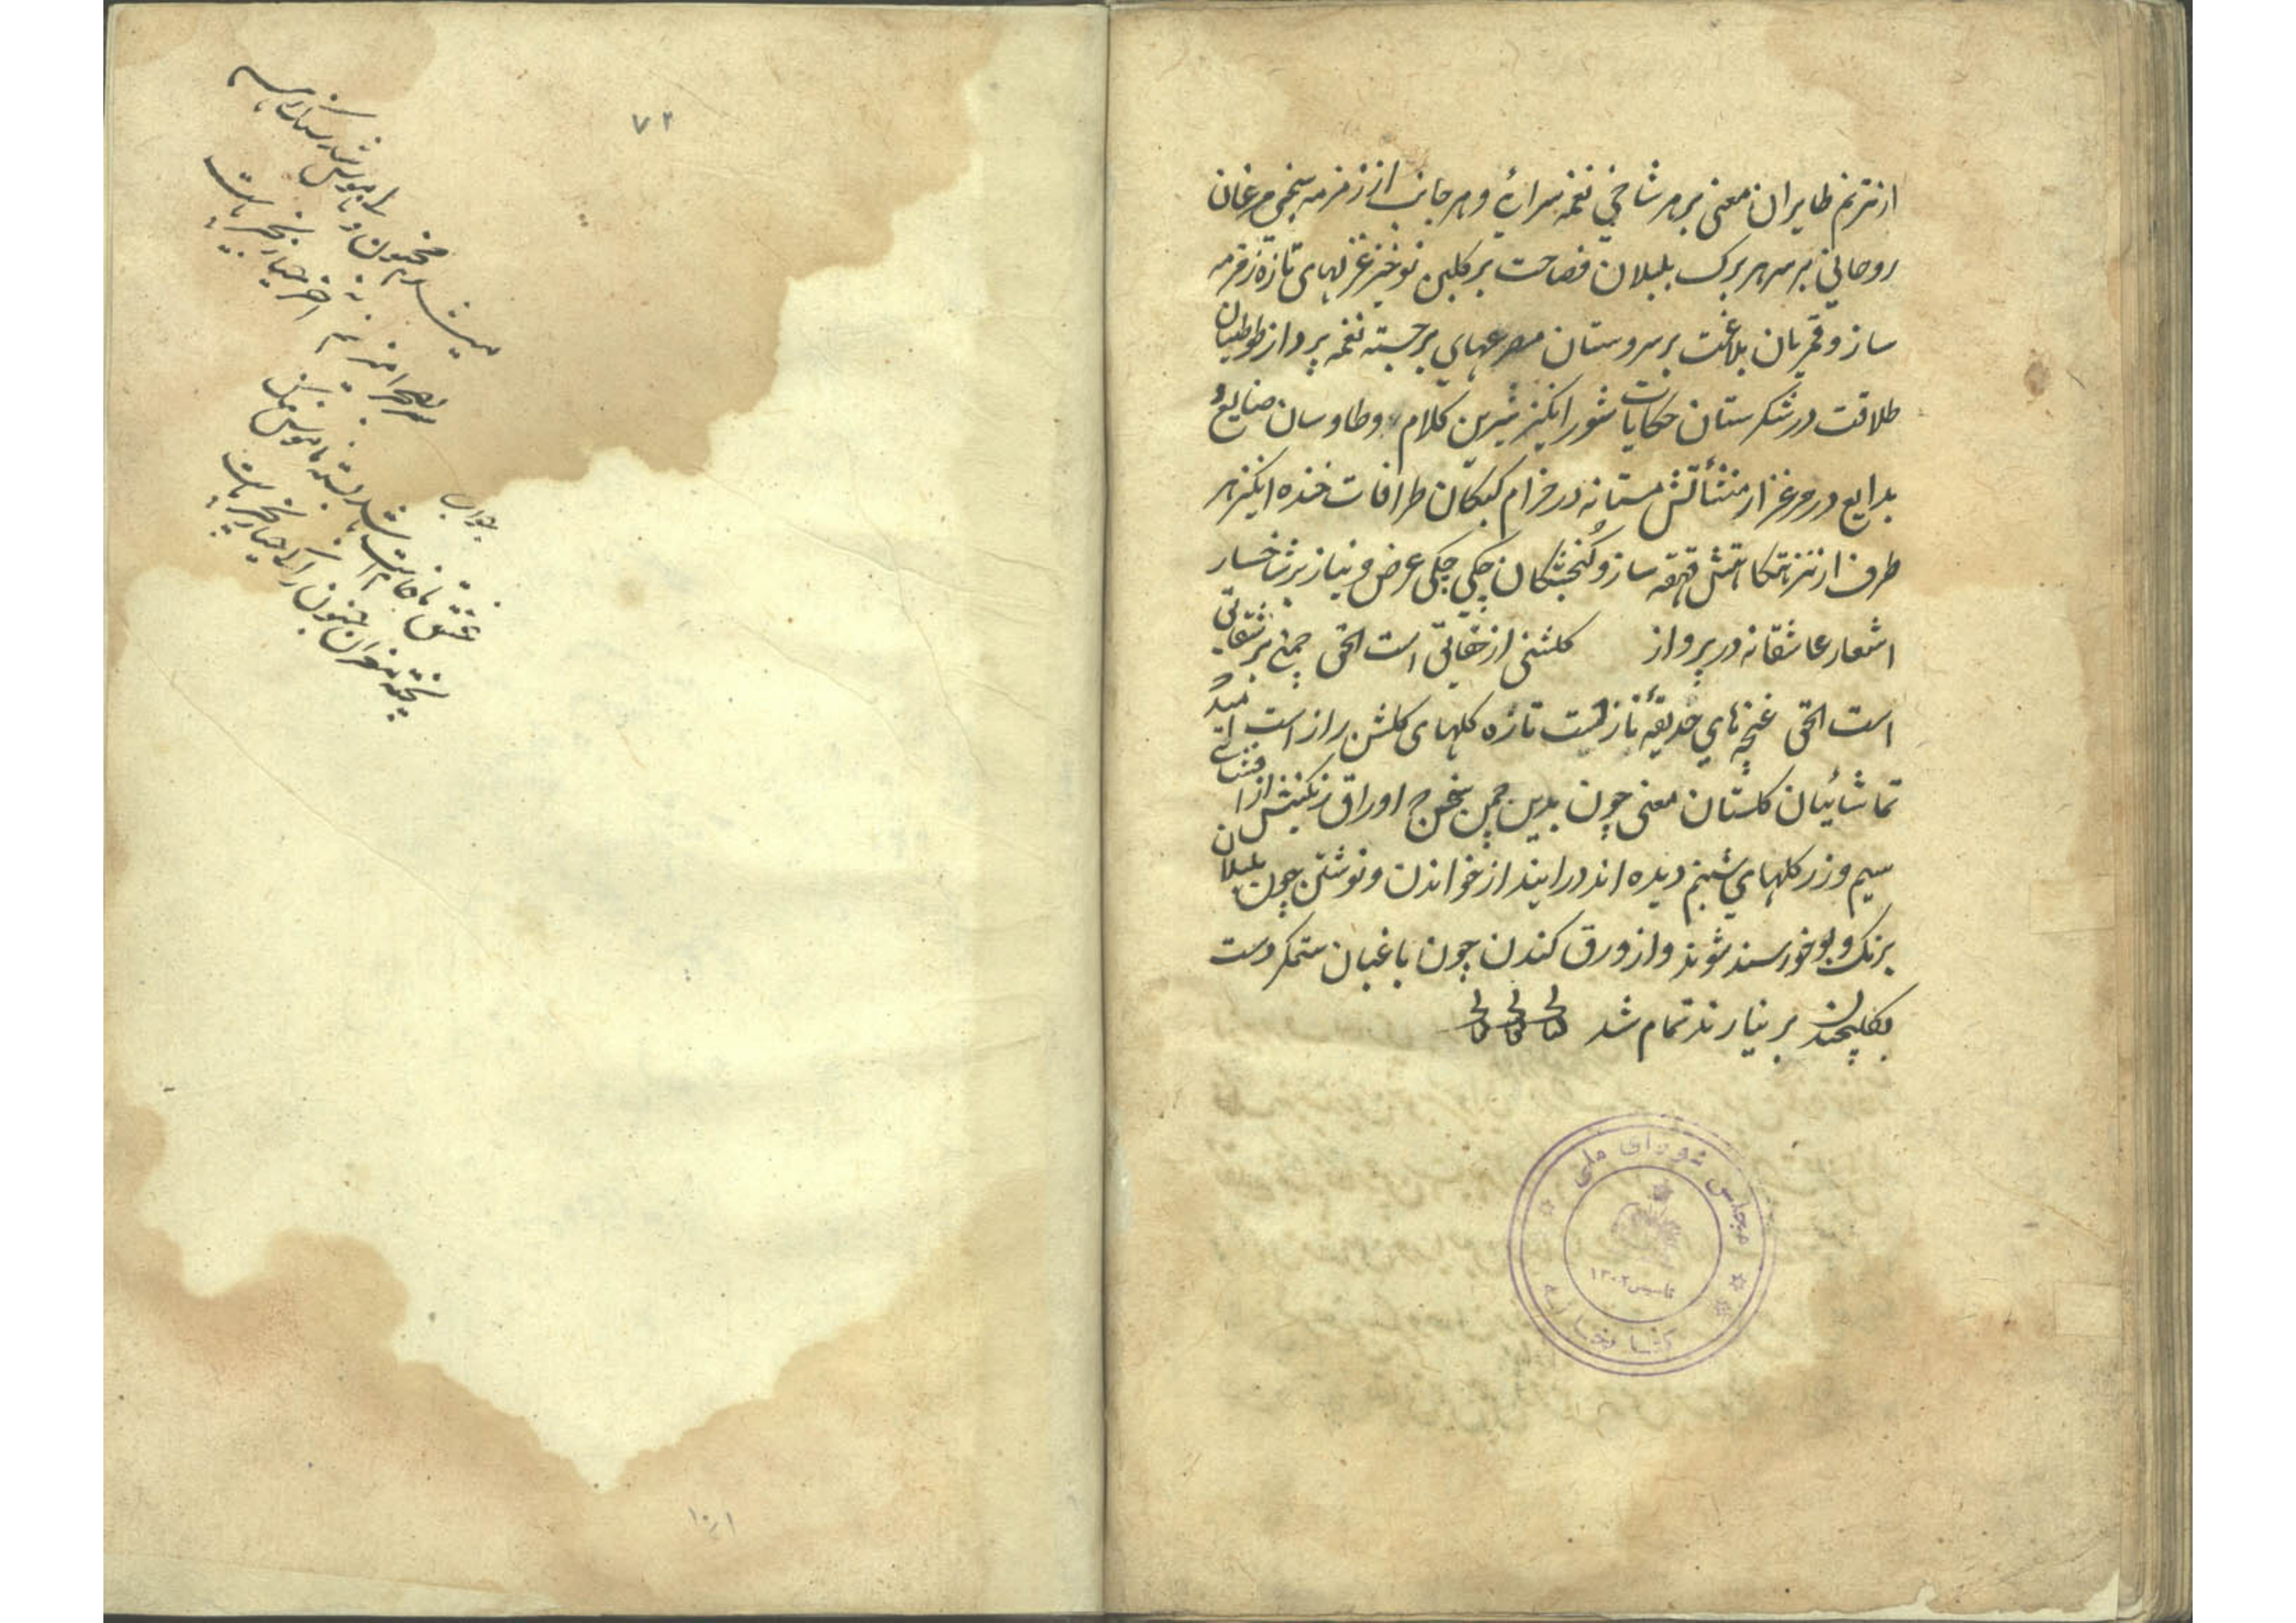 از ترنم طایران معنی بر هر شاخی نغمه سرائی و هر جانب از زمزمه سنجی مرغان
روحانی بر سر هر برک بلبلان فصاحت بر کلبن نوخیز غزلهای تازه زمزمه
ساز و قمریان بلاغت بر سروستان مصرعهای برجسته نغمه پرداز طوطیان
طلاقت در شکرستان حکایات شور انکیز شیرین کلام و طاوسان صنایع و
بدایع در مرغزار منشآتش مستانه در خرام کبکان ظرافات خنده انکیز هر
طرف از نزهتکاهش قهقه ساز و کنجشکان چکی چکی عرض و نیاز بر شاخسار
اشعار عاشقانه در پرواز کلشنی از حقایق است الحق چمنی بر شقایق
است الحق غنچه های حدیقه ناز است تازه کلهای کلشن راز است امید که
تماشائیان کلستان معنی چون بدین چمن اوراق رنکینش از افشانی
سیم و زر کلهای شبنم دیده اند درایند از خواندن و نوشتن چون بلبلان
برنک و بو خورسند شوند و از ورق کندن چون باغبان ستمکر دست
بکلچیدن بر نیارند تمام شد
مجلس شورای ملی
تاسیس ۱۳۰۲
کتابخانه
۷۲
میشدم مجنون و
اخر حیا زنجیر پاست
جواب
عشق ما خام است
پخته مغزان جنون را کی حیا زنجیر پاست